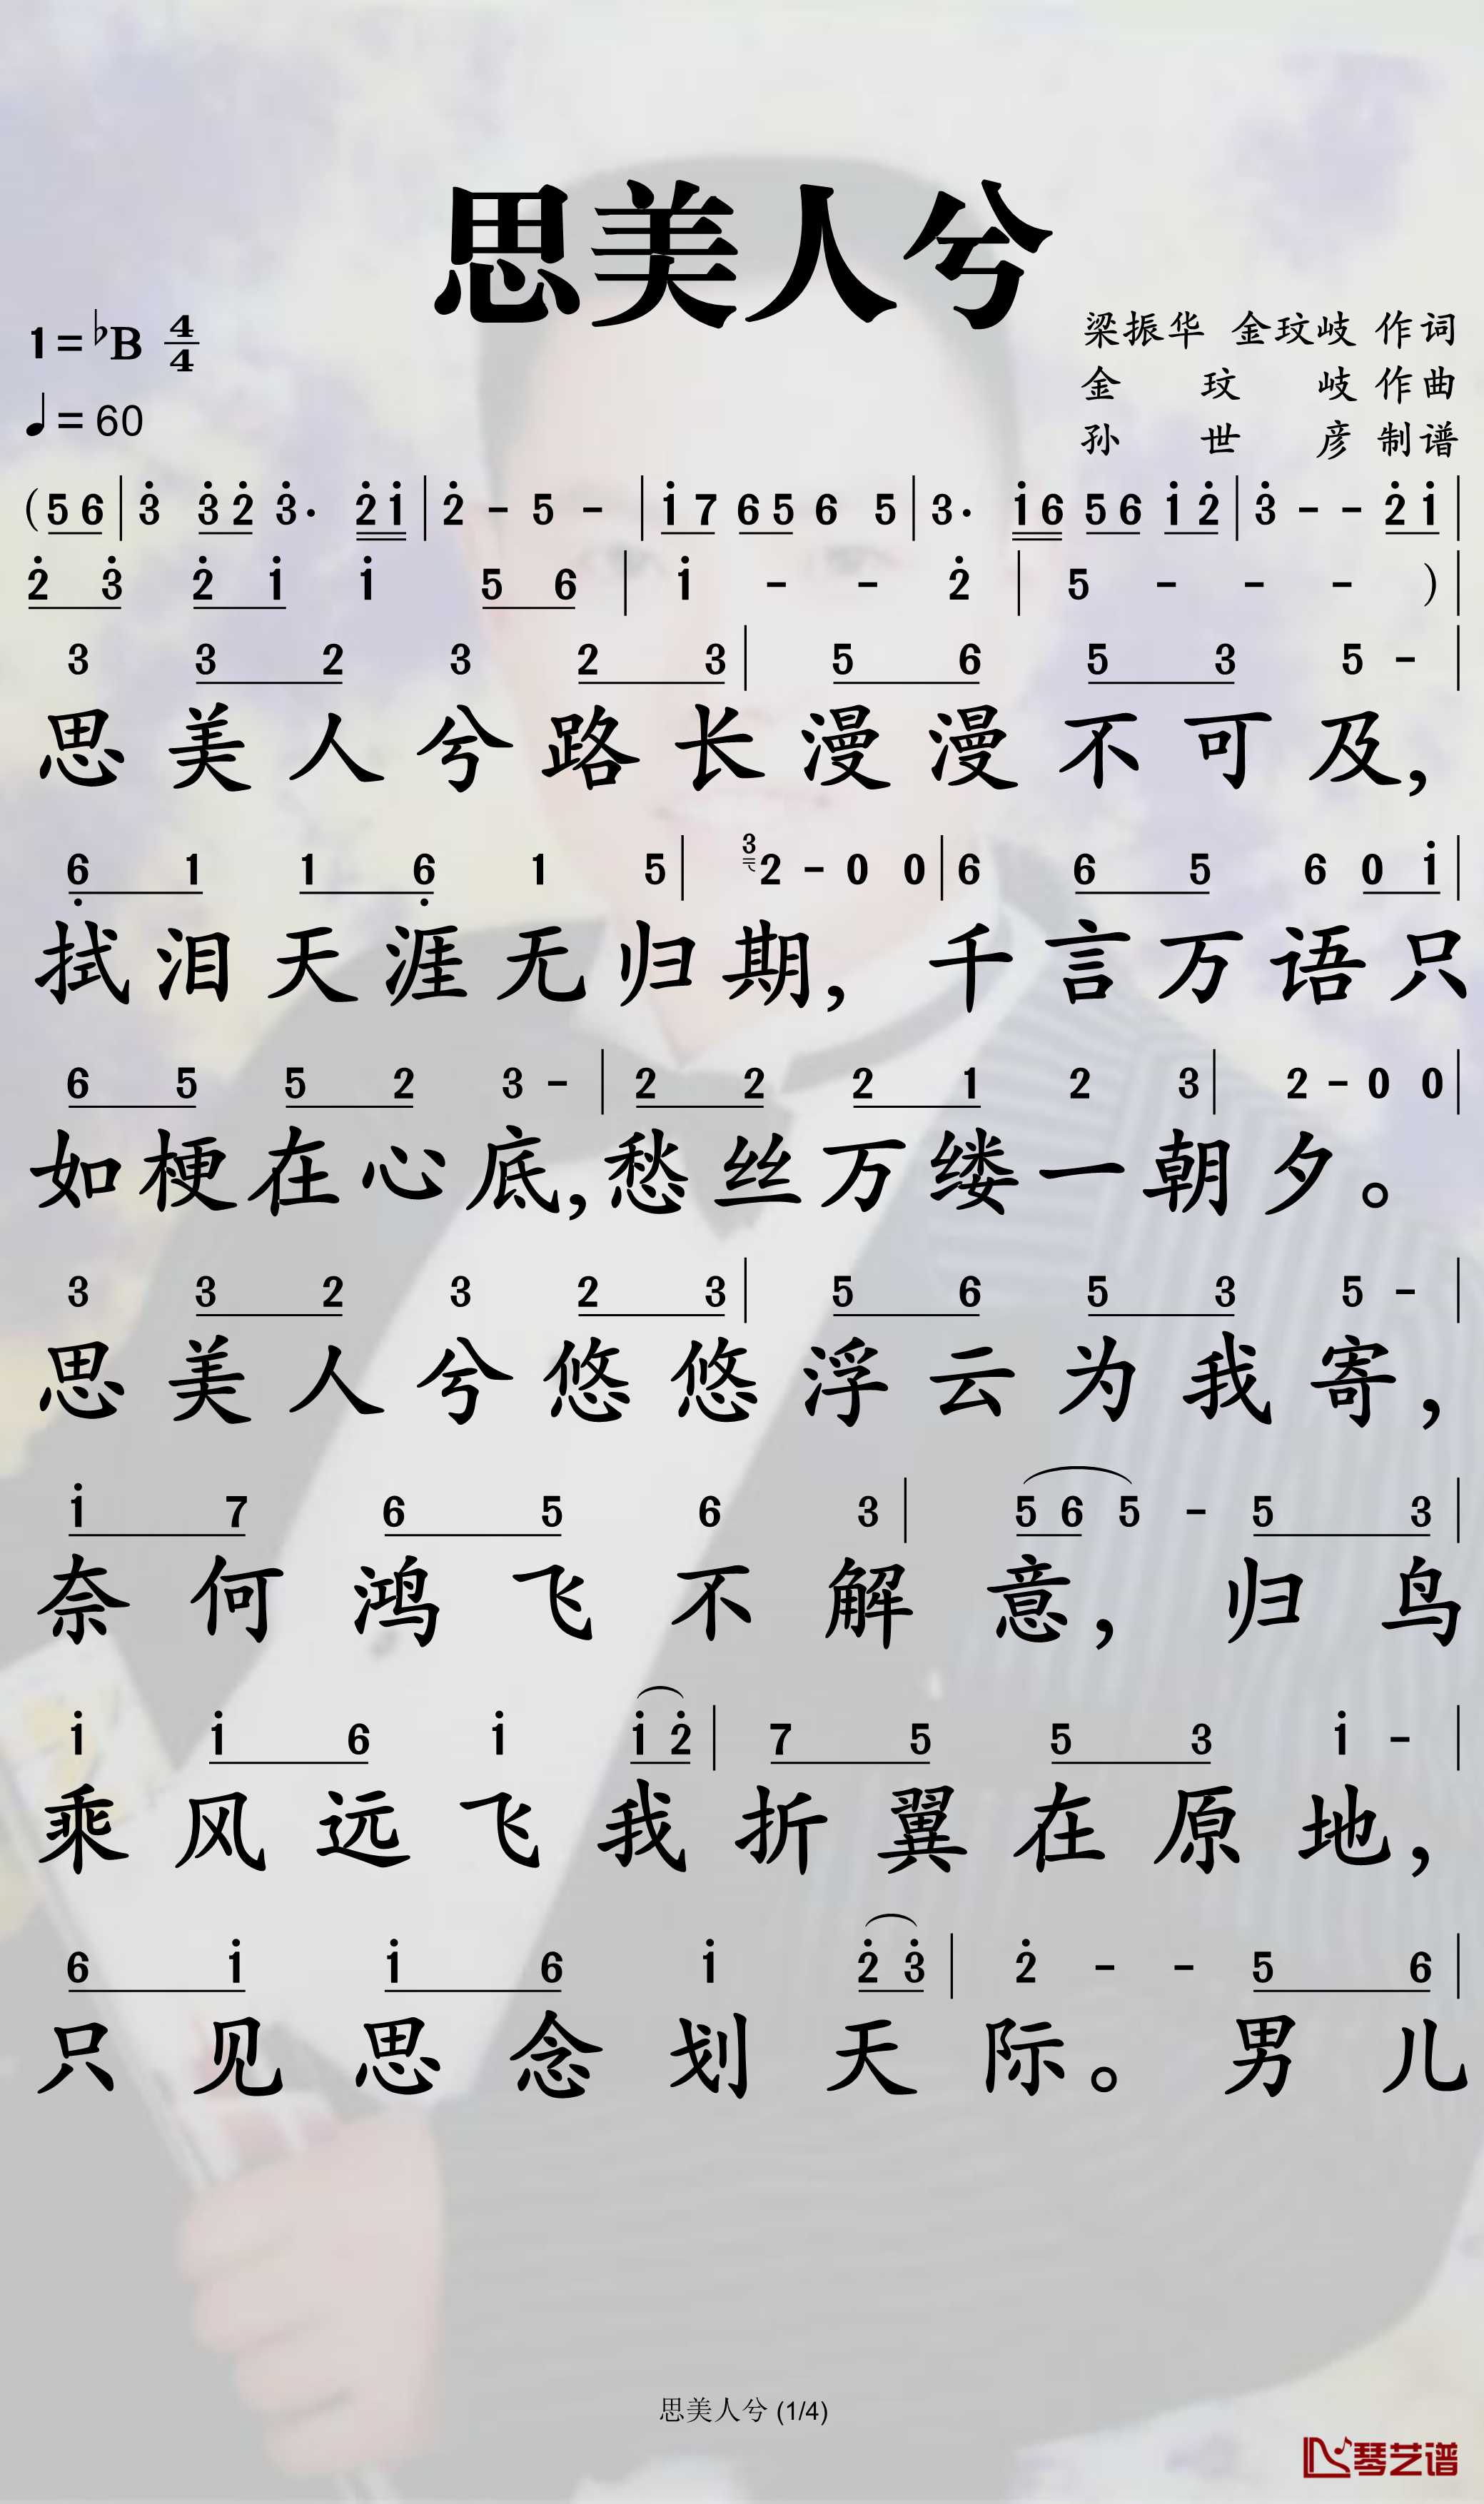 思美人兮
1=♭B 4/4
梁振华 金玟岐 作词
金玟岐 作曲
♩=60
孙世彦 制谱
(5 6 | 3̇ 3̇ 2̇ 3̇· 2̇ 1̇ | 2̇ - 5 - | 1̇ 7 6 5 6 5 | 3· 1̇ 6 5 6 1̇ 2̇ | 3̇ - - 2̇ 1̇ |
2̇ 3̇ 2̇ 1̇ 1̇ 5 6 | 1̇ - - 2̇ | 5 - - - ) |
3 3 2 3 2 3 | 5 6 5 3 5 - |
思美人兮路长漫漫不可及,
6̣ 1 1 6̣ 1 5 | 3 2 - 0 0 | 6 6 5 6 0 1̇ |
拭泪天涯无归期, 千言万语只
6 5 5 2 3 - | 2 2 2 1 2 3 | 2 - 0 0 |
如梗在心底,愁丝万缕一朝夕。
3 3 2 3 2 3 | 5 6 5 3 5 - |
思美人兮悠悠浮云为我寄,
1̇ 7 6 5 6 3 | 5 6 5 - 5 3 |
奈何鸿飞不解意, 归鸟
1̇ 1̇ 6 1̇ 1̇ 2̇ | 7 5 5 3 1̇ - |
乘风远飞我折翼在原地,
6 1̇ 1̇ 6 1̇ 2̇ 3̇ | 2̇ - - 5 6 |
只见思念划天际。男儿
思美人兮 (1/4)
琴艺谱